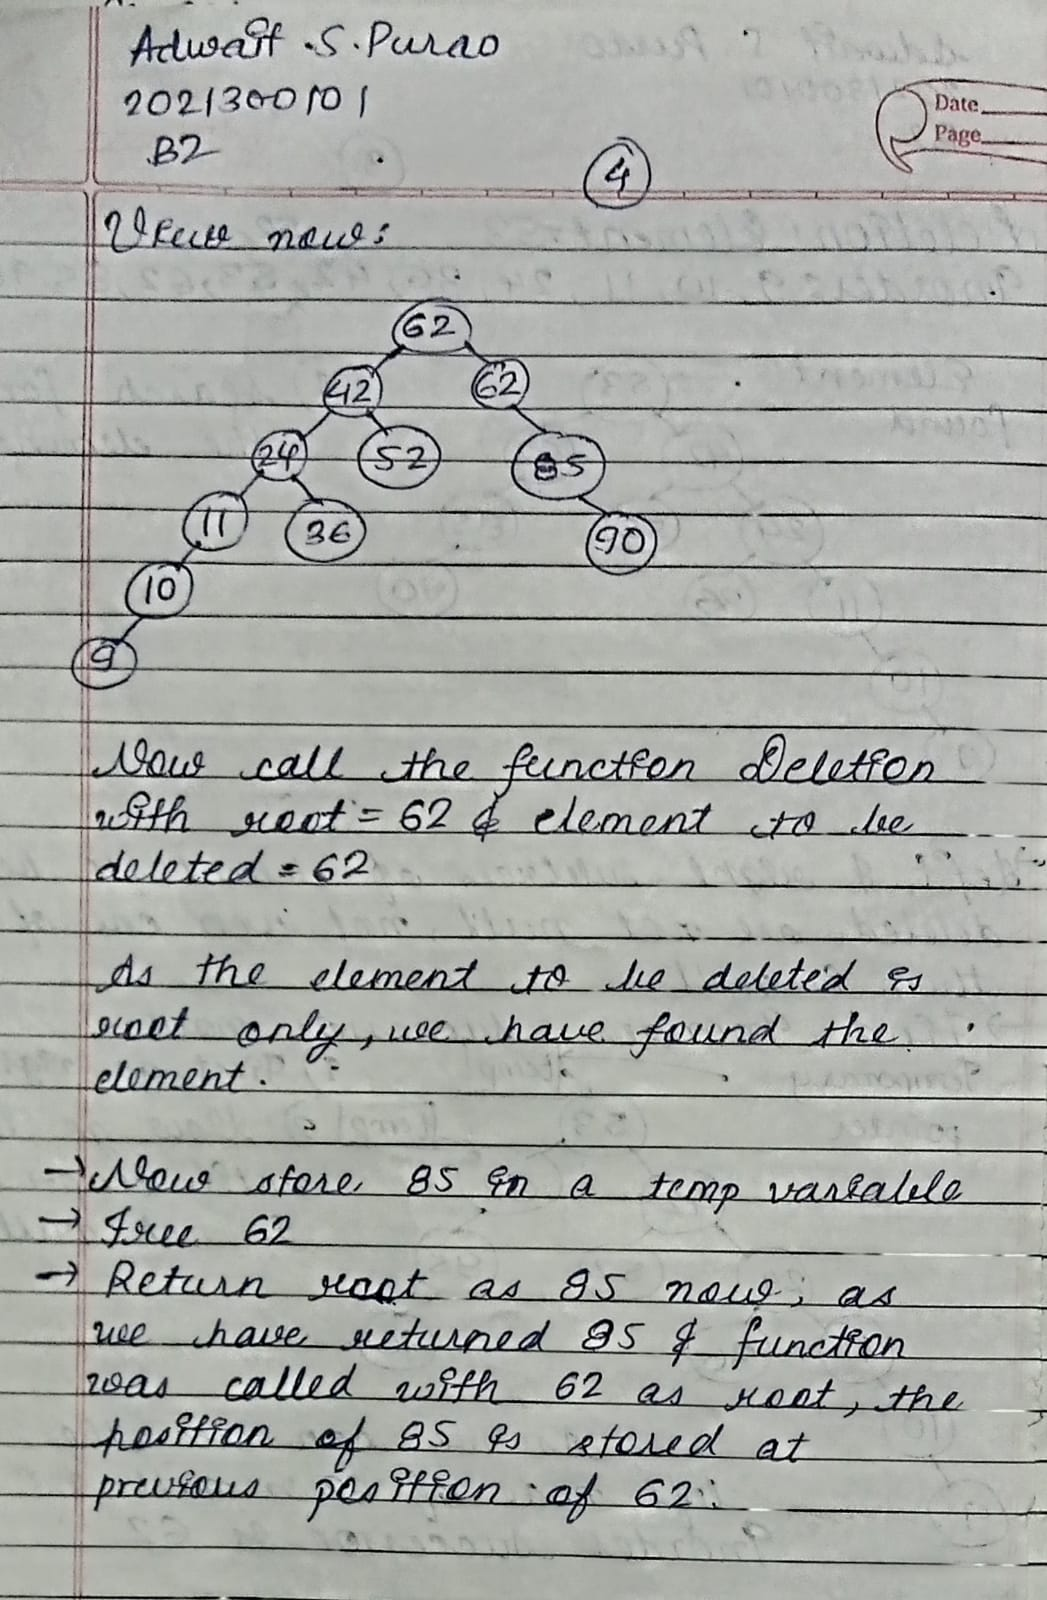 Adwait .S. Purao
2021300101
B2
Date
Page
4
View now:
62
42 62
24 52 85
11 36 90
10
9
Now call the function Deletion
with root = 62 & element to be
deleted = 62
As the element to be deleted is
root only, we have found the
element.
→ Now store 85 in a temp variable
→ Free 62
→ Return root as 85 now, as
we have returned 85 & function
was called with 62 as root, the
position of 85 is stored at
previous position of 62.